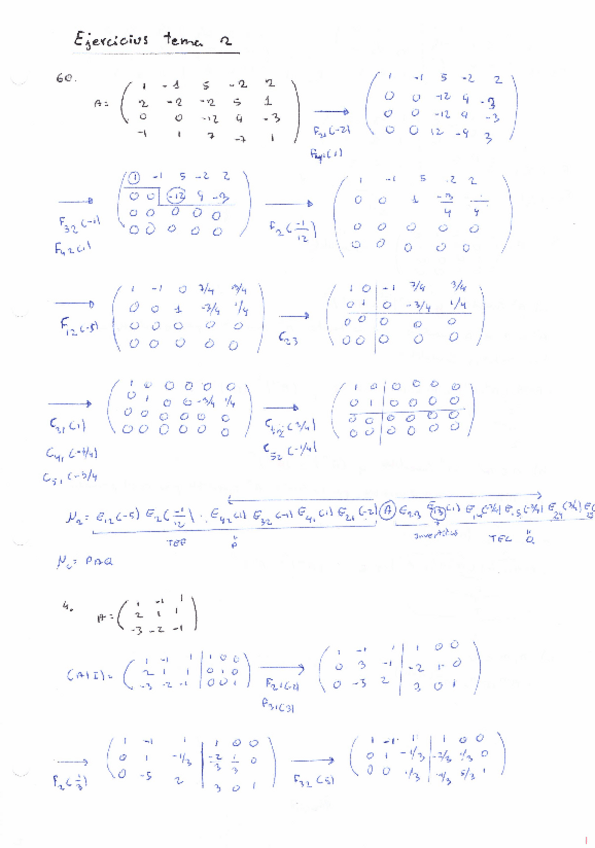 Ejercicios tema 2
60.
A = ( 1 -1 5 -2 2
2 -2 -2 5 1
0 0 -12 9 -3
-1 1 7 -7 1 )
F21(-2)
F41(1)
( 1 -1 5 -2 2
0 0 -12 9 -3
0 0 -12 9 -3
0 0 12 -9 3 )
F32(-1)
F42(1)
( 1 -1 5 -2 2
0 0 -12 9 -3
0 0 0 0 0
0 0 0 0 0 )
F2(-1/12)
( 1 -1 5 -2 2
0 0 1 -3/4
0 0 0 0 0
0 0 0 0 0 )
F12(-5)
( 1 -1 0 7/4 3/4
0 0 1 -3/4 1/4
0 0 0 0 0
0 0 0 0 0 )
C23
( 1 0 -1 7/4 3/4
0 1 0 -3/4 1/4
0 0 0 0 0
0 0 0 0 0 )
C31(1)
( 1 0 0 0 0 0
0 1 0 0 -3/4 1/4
0 0 0 0 0 0
0 0 0 0 0 0 )
C52(-1/4)
( 1 0 0 0 0 0
0 1 0 0 0 0
0 0 0 0 0 0
0 0 0 0 0 0 )
E12(-5) E2(-1/12) · E42(1) E32(-1) E41(1) E21(-2) A
TEF P TEC Q
= PAQ
4.
A = ( 1 -1 1
2 1 1
-3 -2 -1 )
(A|I) = ( 1 -1 1 | 1 0 0
2 1 1 | 0 1 0
-3 -2 -1 | 0 0 1 )
F21(-2)
F31(3)
( 1 -1 1 | 1 0 0
0 3 -1 | -2 1 0
0 -5 2 | 3 0 1 )
F2(1/3)
( 1 -1 1 | 1 0 0
0 1 -1/3 | -2/3 1/3 0
0 -5 2 | 3 0 1 )
F32(5)
( 1 -1 1 | 1 0 0
0 1 -1/3 | -2/3 1/3 0
0 0 1/3 | -1/3 5/3 1 )
1